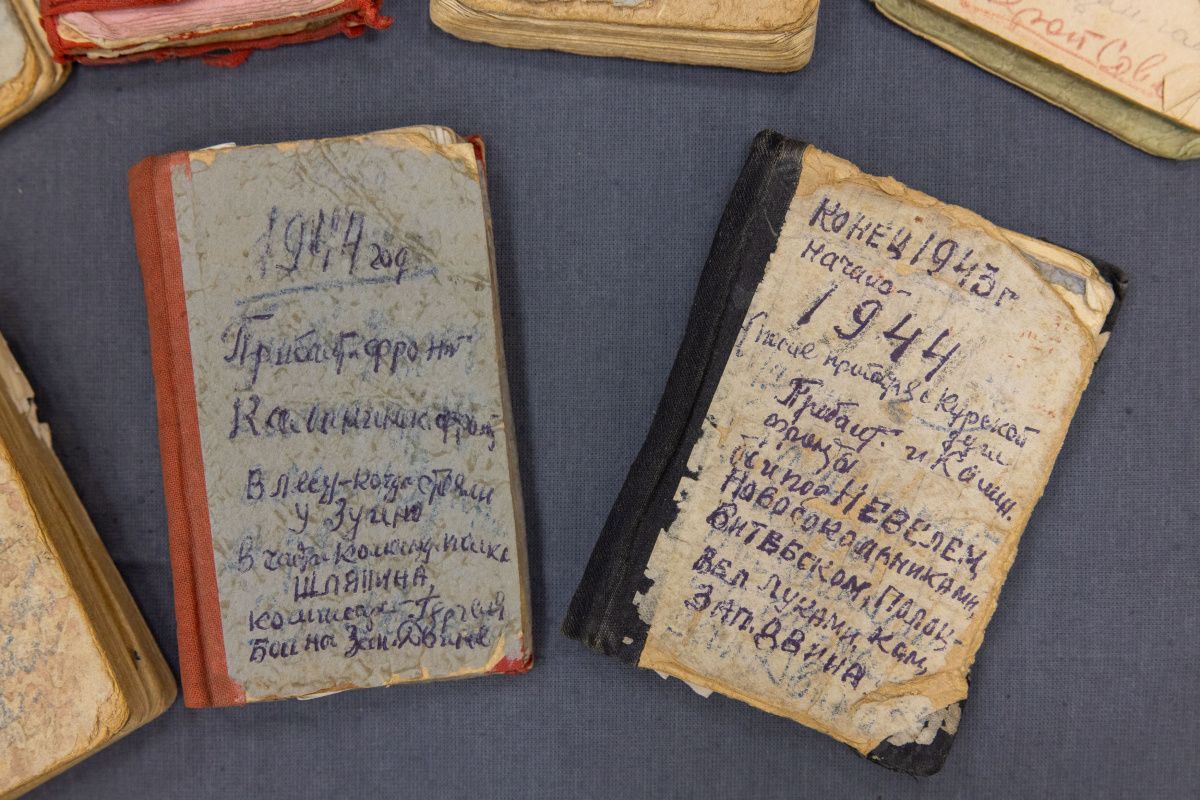 1944 год
Прибалт. фронт
Калининск фронт
В лесу - когда стояли
у Зуёно
В части команд. полка
ШЛЯПИНА,
комиссар
Бои на Зап. Двине
КОНЕЦ 1943 г
начало -
1944
после Курской
дуги
Прибалт. и Калин.
фронты
Бои под НЕВЕЛЕМ,
Новосокольниками,
ВИТЕБСКОМ, Полоц-
Вел. Луками, Ком,
ЗАП. ДВИНА